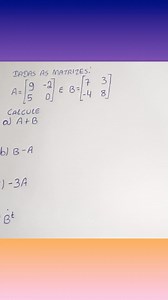 DADAS AS MATRIZES:
A=[9 -2
5 0] E B=[7 3
-4 8]
CALCULE
a) A+B
b) B-A
) -3A
B^t